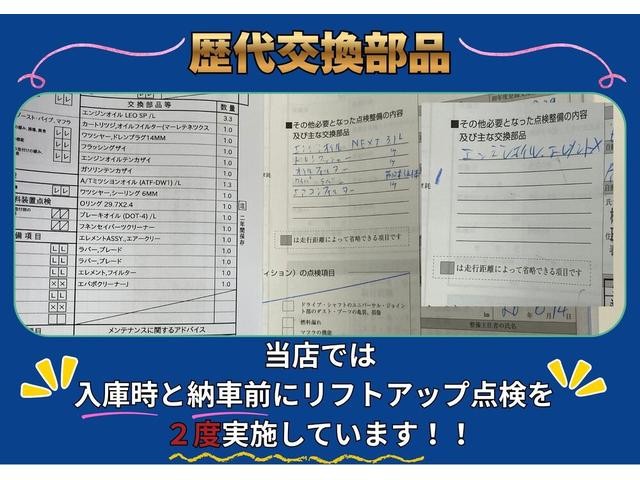 歴代交換部品
交換部品等 数量
エンジンオイル LEO SP /L 3.3
カートリッジ,オイルフィルター(マーレテネックス 1.0
ワッシャー,ドレンプラグ14MM 1.0
フラッシングザイ 1.0
エンジンオイルテンカザイ 1.0
ガソリンテンカザイ 1.0
A/Tミツションオイル (ATF-DW1) /L 1.3
ワッシャー,シーリング 6MM 1.0
Oリング 29.7X2.4 1.0
ブレーキオイル (DOT-4) /L 1.0
フネンセイパーツクリーナー 1.0
エレメントASSY., エアークリー 1.0
ラバー,ブレード 1.0
ラバー,ブレード 1.0
エレメント,フイルター 1.0
エバポクリーナーJ 1.0
メンテナンスに関するアドバイス
料装置点検
備項目
二年間保存
■その他必要となった点検整備の内容
及び主な交換部品
エンジンオイル NEXT 3.1L
オイルフィルター
エアコンフィルター
は走行距離によって省略できる項目です
ィション)の点検項目
ドライブ・シャフトのユニバーサル・ジョイント部のダスト・ブーツの亀裂、損傷
燃料漏れ
マフラの機能
■その他必要となった点検整備の内容
及び主な交換部品
エンジンオイル、エレメント
は走行距離によって省略できる項目です
整備主任者の氏名
当店では
入庫時と納車前にリフトアップ点検を
2度実施しています！！